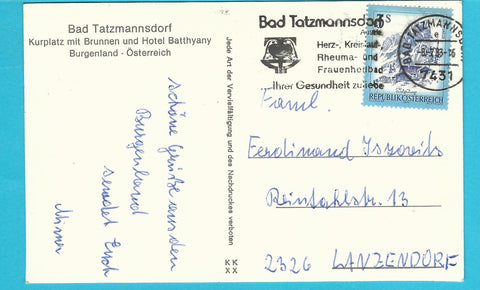 Bad Tatzmannsdorf
Kurplatz mit Brunnen und Hotel Batthyany
Burgenland - Österreich
schöne Grüße aus dem
Burgenland
sendet Euch
Jede Art der Vervielfältigung und des Nachdruckes verboten
KK
XX
Bad Tatzmannsdorf
Herz-, Kreislauf-
Rheuma- und
Frauenheilbad
Ihrer Gesundheit zuliebe
3 S
REPUBLIK ÖSTERREICH
BAD TATZMANNSDORF
7431
Faml.
Ferdinand Iszovits
Reintalstr. 13
2326 LANZENDORF